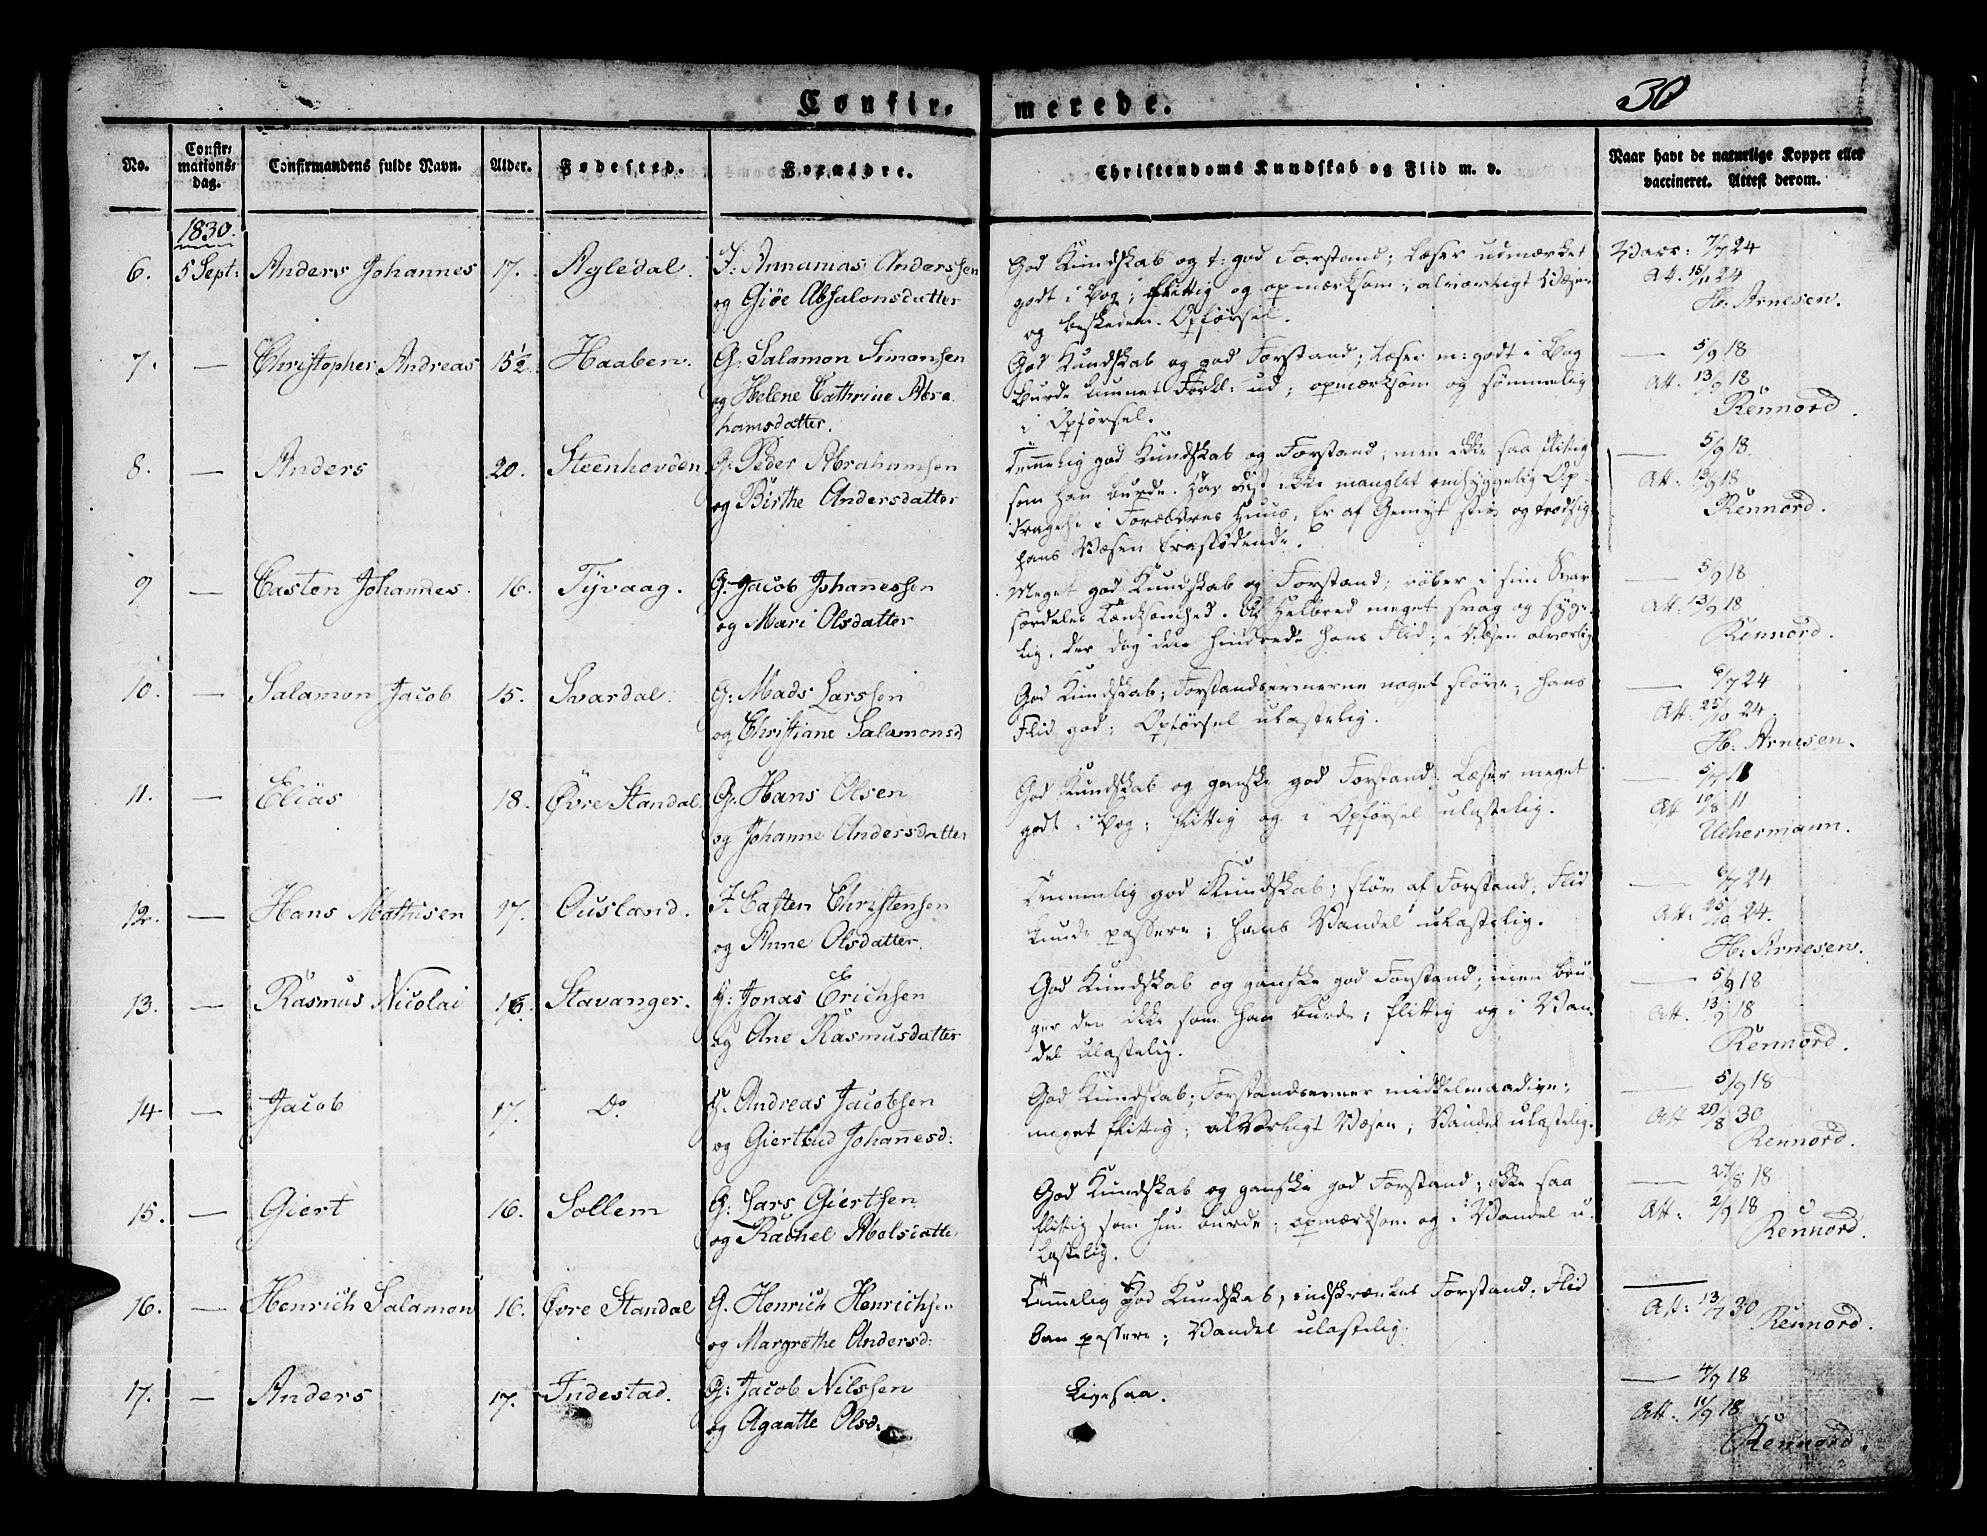 Confirmerede.
30
No.
Confirmationsdag.
Confirmandens fulde Navn.
Alder.
Fødested.
Forældre.
Christendoms Kundskab og Flid m. v.
Naar havt de naturlige Kopper eller vaccineret. Attest derom.
1830.
6. 5 Sept: Anders Johannes 17. Ågledal. F: Annanias Anderssen
og Giøe Absalonsdatter
God Kundskab og t: god Forstand; Læser udmærket
godt i Bog; flittig og opmærksom; alvorligt Væsen
og beskeden Opførsel.
Vacc: 7/7 24
Att. 15/11 24
H: Arnesen.
7. — Christopher Andreas 15½ Haaben. G: Salamon Simonsen
og Helene Cathrine Abra
hamsdatter.
God Kundskab og god Forstand; Læser m: godt i Bog
Burde kunnet Forkl: ud; opmærksom og sømmelig
i Opførsel.
— 5/9 18
Att. 13/9 18
Rennord.
8. — Anders 20. Steenhovden G: Peder Abrahamsen
og Birthe Andersdatter
Temmelig god Kundskab og Forstand, men ikke saa flittig
som han burde. Har vist ikke manglet omhyggelig Op-
dragelse i Forældres Huus; Er af Gemyt stiv og trodsig
hans Væsen frastødende.
— 5/9 18.
Att: 13/9 18
Rennord.
9 — Casten Johannes. 16. Tyvaag. G: Jacob Johanessen
og Mari Olsdatter
Meget god Kundskab og Forstand; røber i sine Svar
særdeles Tænksomhed. Af Helbred meget svag og syge-
lig, der dog ikke hindrede hans Flid; i Væsen alvorlig
— 5/9 18
Att. 13/9 18
Rennord.
10. — Salamon Jacob 15. Svardal. G: Mads Larssen
og Christiane Salamonsd
God Kundskab; Forstandsevnerne noget sløve; hans
Flid god; Opførsel ulastelig.
— 6/7 24
Att. 25/10 24.
H: Arnesen.
11. — Elias 18. Øvre Standal. G: Hans Olsen
og Johanne Andersdatter
God Kundskab og ganske god Forstand. Læser meget
godt i Bog; flittig og i Opførsel ulastelig.
— 5/7 11
Att 10/8 11
Uchermann.
12. — Hans Mathisen 17. Ousland. F. Casten Christensen
og Anne Olsdatter.
Temmelig god Kundskab; sløv af Forstand; Flid
kunde passere; hans Vandel ulastelig.
— 6/7 24
Att: 25/10 24.
H: Arnesen.
13. — Rasmus Nicolai 16. Stavanger. G: Jonas Erichsen
og Ane Rasmusdatter
God Kundskab og ganske god Forstand; men bru
ger den ikke som han burde; flittig og i Van
del ulastelig.
— 5/9 18
Att. 13/9 18
Rennord.
14 — Jacob 17. Do G. Andreas Jacobsen
og Giertrud Johannesd:
God Kundskab; Forstandsevner middelmaadige;
meget flittig; alvorligt Væsen; Vandel ulastelig.
— 5/9 18
Att 29/8 30
Rennord.
15. — Giert 16. Sollem G: Lars Giertsen
og Rachel Atlolsdatter
God Kundskab og ganske god Forstand; ikke saa
flitig som hun burde; opmærksom og i Vandel u-
lastelig.
— 27/8 18
Att: 2/9 18
Rennord.
16. — Henrich Salamon 16. Øvre Standal G. Henrich Henrichsen
og Margrethe Andersd:
Temmelig god Kundskab; indskrænket Forstand. Flid
kan passere; Vandel ulastelig.
—
Att: 13/7 30
Rennord.
17. — Anders 17. Indestad. G: Jacob Nilssen
og Agaatte Olsd:
Ligesaa.
— 4/9 18
Att. 11/9 18
Rennord.